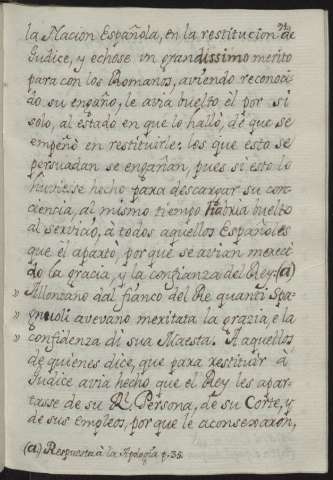 la Nacion Española, en la restitucion de
Judice, y echose un grandissimo merito
para con los Romanos, aviendo reconoci-
do su engaño, le avia buelto él por si
solo, al estado en que lo halló, de que se
empeñó en restituirle: los que esto se
persuadan se engañan, pues si esto lo
huviesse hecho para descargar su con-
ciencia, al mismo tiempo habria buelto
al servicio, à todos aquellos Españoles
que él apartò, por que se avian mereci-
do la gracia, y la confianza del Rey: (a)
» Allontano dal fianco del Re quanti Spa-
» gnuoli avevano meritata la grazia, e la
» confidenza di sua Maesta. A aquellos
de quienes dice, que para restituir à
Judice avia hecho que el Rey les apar-
tasse de su Rl. Persona, de su Corte, y
de sus empleos, por que le aconsexaron,
(a) Respuesta à la Apologia p. 35.